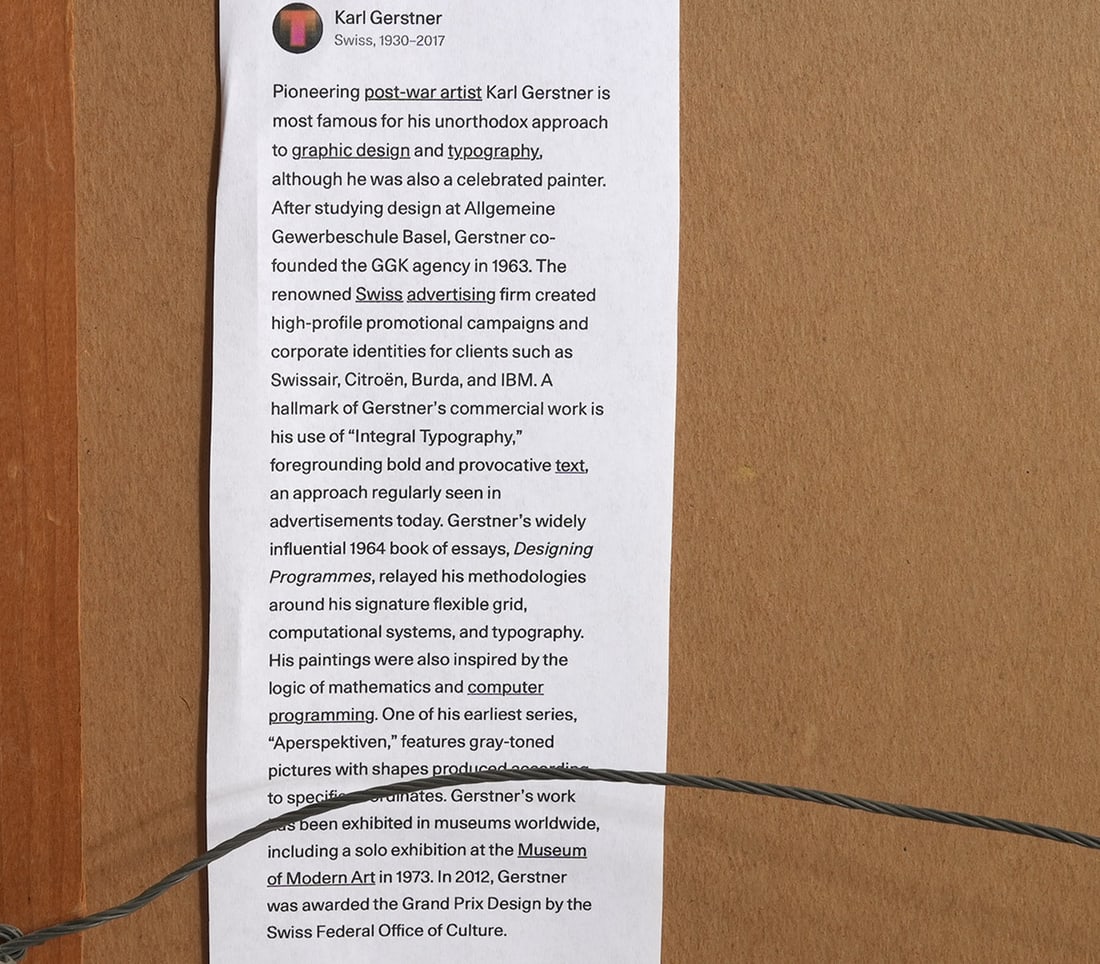 T
Karl Gerstner
Swiss, 1930–2017
Pioneering post-war artist Karl Gerstner is
most famous for his unorthodox approach
to graphic design and typography,
although he was also a celebrated painter.
After studying design at Allgemeine
Gewerbeschule Basel, Gerstner co-
founded the GGK agency in 1963. The
renowned Swiss advertising firm created
high-profile promotional campaigns and
corporate identities for clients such as
Swissair, Citroën, Burda, and IBM. A
hallmark of Gerstner’s commercial work is
his use of “Integral Typography,”
foregrounding bold and provocative text,
an approach regularly seen in
advertisements today. Gerstner’s widely
influential 1964 book of essays, Designing
Programmes, relayed his methodologies
around his signature flexible grid,
computational systems, and typography.
His paintings were also inspired by the
logic of mathematics and computer
programming. One of his earliest series,
“Aperspektiven,” features gray-toned
pictures with shapes produced according
to specific coordinates. Gerstner’s work
has been exhibited in museums worldwide,
including a solo exhibition at the Museum
of Modern Art in 1973. In 2012, Gerstner
was awarded the Grand Prix Design by the
Swiss Federal Office of Culture.